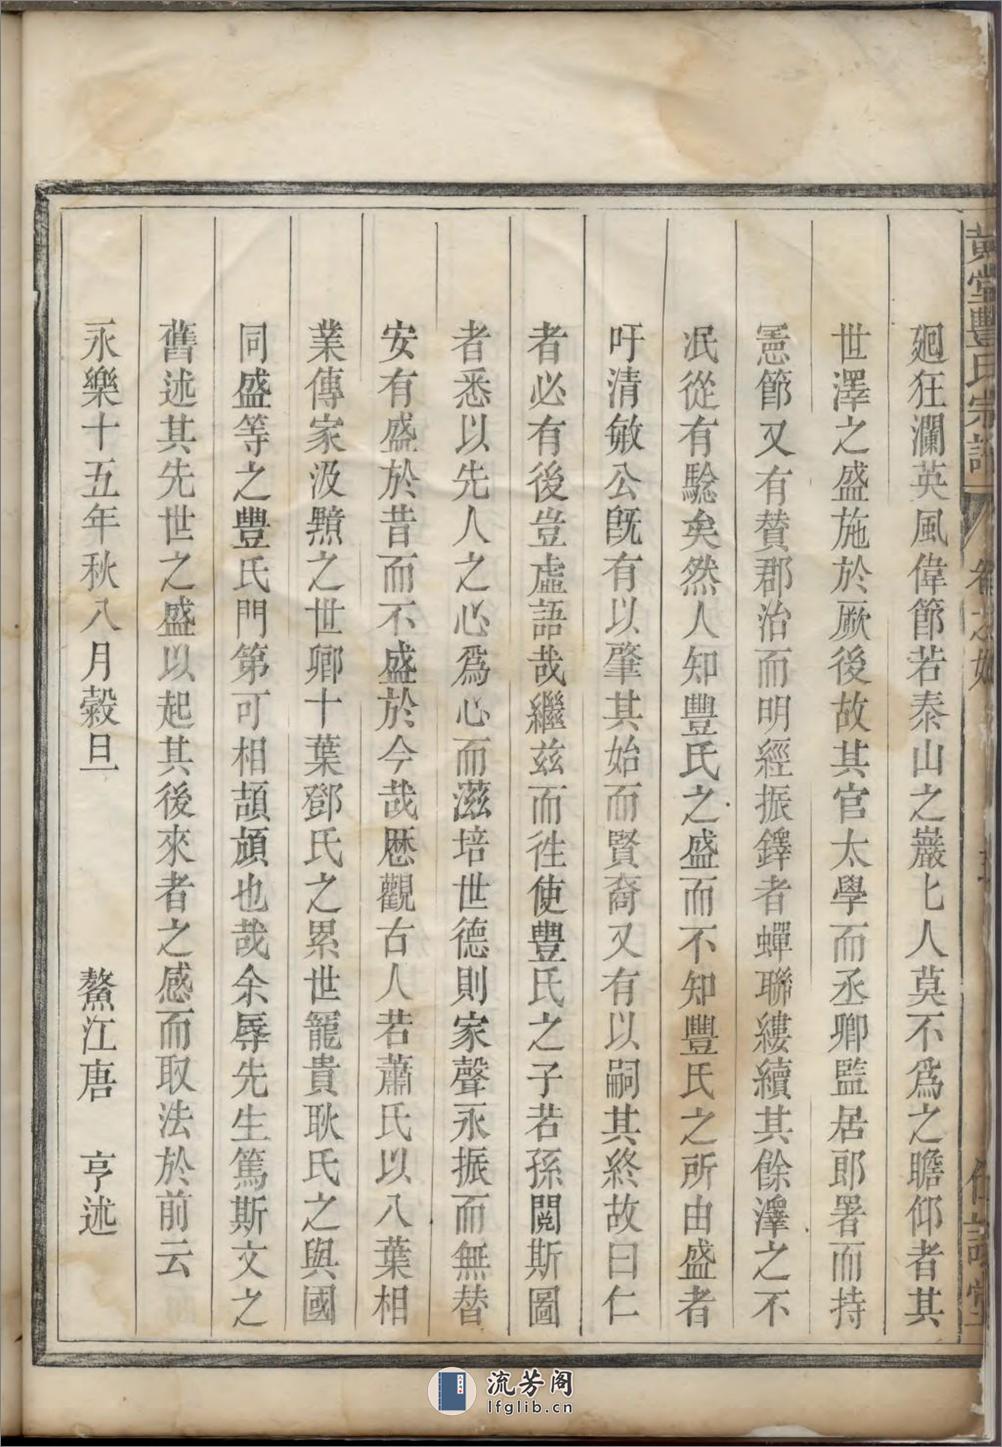 黄堂豐氏宗譜
卷之如
廻狂瀾英風偉節若泰山之巖匕人莫不爲之瞻仰者其
世澤之盛施於厥後故其官太學而丞卿監居郎署而持
憲節又有賛郡治而明經振鐸者蟬聯縷續其餘澤之不
泯從有騐矣然人知豐氏之盛而不知豐氏之所由盛者
吁清敏公旣有以肇其始而賢裔又有以嗣其終故曰仁
者必有後豈虛語哉繼兹而徃使豐氏之子若孫閱斯圖
者悉以先人之心爲心而滋培世德則家聲永振而無替
安有盛於昔而不盛於今哉歷觀古人若蕭氏以八葉相
業傳家汲黯之世卿十葉鄧氏之累世寵貴耿氏之與國
同盛等之豐氏門第可相頡頏也哉余辱先生篤斯文之
舊述其先世之盛以起其後來者之感而取法於前云
永樂十五年秋八月穀旦　鰲江唐　亨述
流芳阁
lfglib.cn